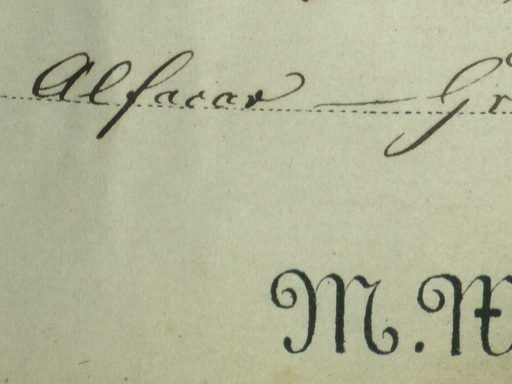 Alfacar — Gr
M.